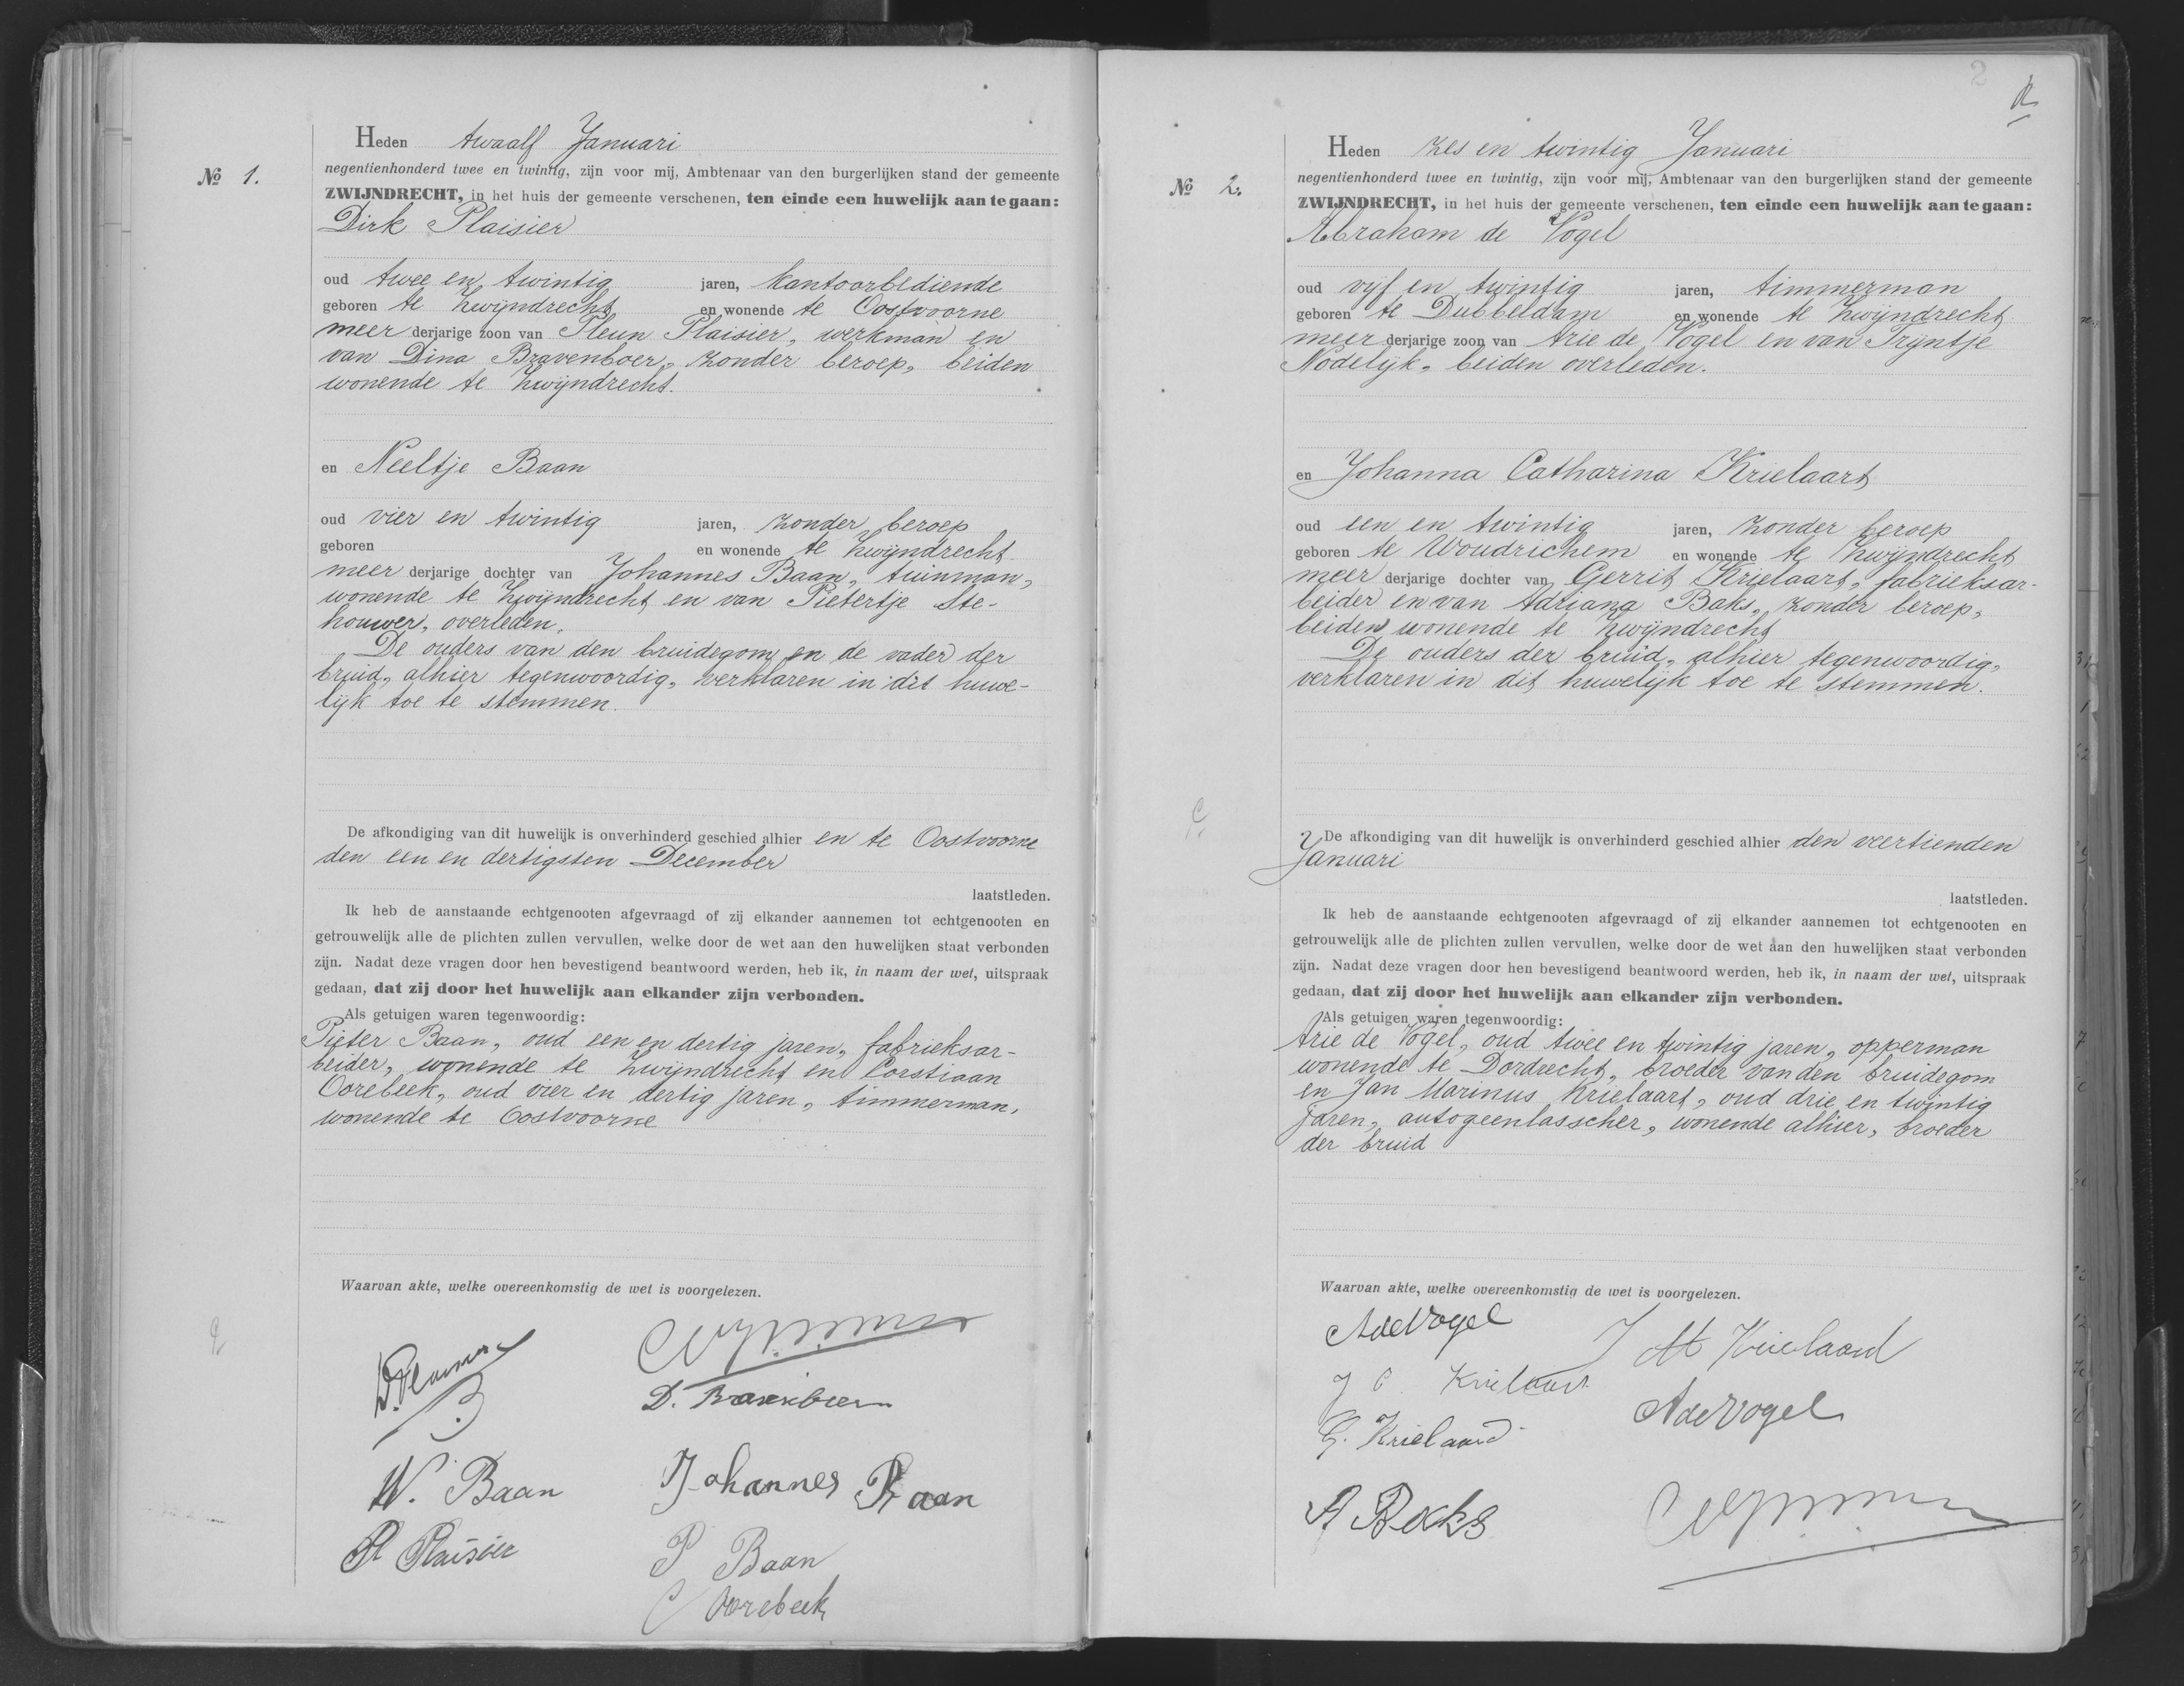 Nº 1.
Heden twaalf Januari
negentienhonderd twee en twintig, zijn voor mij, Ambtenaar van den burgerlijken stand der gemeente
ZWIJNDRECHT, in het huis der gemeente verschenen, ten einde een huwelijk aan te gaan:
Dirk Plaisier
oud twee en twintig jaren, kantoorbediende
geboren te Zwijndrecht en wonende te Oostvoorne
meer derjarige zoon van Pleun Plaisier, werkman en
van Dina Bravenboer, zonder beroep, beiden
wonende te Zwijndrecht.
en Neeltje Baan
oud vier en twintig jaren, zonder beroep
geboren en wonende te Zwijndrecht
meer derjarige dochter van Johannes Baan, tuinman,
wonende te Zwijndrecht en van Pietertje Ste-
houwer, overleden.
De ouders van den bruidegom en de vader der
bruid, alhier tegenwoordig, verklaren in dit huwe-
lijk toe te stemmen.
De afkondiging van dit huwelijk is onverhinderd geschied alhier en te Oostvoorne
den een en dertigsten December
laatstleden.
Ik heb de aanstaande echtgenooten afgevraagd of zij elkander aannemen tot echtgenooten en
getrouwelijk alle de plichten zullen vervullen, welke door de wet aan den huwelijken staat verbonden
zijn. Nadat deze vragen door hen bevestigend beantwoord werden, heb ik, in naam der wet, uitspraak
gedaan, dat zij door het huwelijk aan elkander zijn verbonden.
Als getuigen waren tegenwoordig:
Pieter Baan, oud een en dertig jaren, fabrieksar-
beider, wonende te Zwijndrecht en Corstiaan
Oorebeek, oud vier en dertig jaren, timmerman,
wonende te Oostvoorne
Waarvan akte, welke overeenkomstig de wet is voorgelezen.
D. Plaisier
D. Bravenboer
N. Baan Johannes Baan
Pl Plaisier P Baan
C Oorebeek
2
Nº 2.
Heden zes en twintig Januari
negentienhonderd twee en twintig, zijn voor mij, Ambtenaar van den burgerlijken stand der gemeente
ZWIJNDRECHT, in het huis der gemeente verschenen, ten einde een huwelijk aan te gaan:
Abraham de Vogel
oud vijf en twintig jaren, timmerman
geboren te Dubbeldam en wonende te Zwijndrecht
meer derjarige zoon van Arie de Vogel en van Trijntje
Nodelijk, beiden overleden.
en Johanna Catharina Krielaart
oud een en twintig jaren, zonder beroep
geboren te Woudrichem en wonende te Zwijndrecht
meer derjarige dochter van Gerrit Krielaart, fabrieksar-
beider en van Adriana Baks, zonder beroep,
beiden wonende te Zwijndrecht
De ouders der bruid, alhier tegenwoordig,
verklaren in dit huwelijk toe te stemmen.
De afkondiging van dit huwelijk is onverhinderd geschied alhier den veertienden
Januari
laatstleden.
Ik heb de aanstaande echtgenooten afgevraagd of zij elkander aannemen tot echtgenooten en
getrouwelijk alle de plichten zullen vervullen, welke door de wet aan den huwelijken staat verbonden
zijn. Nadat deze vragen door hen bevestigend beantwoord werden, heb ik, in naam der wet, uitspraak
gedaan, dat zij door het huwelijk aan elkander zijn verbonden.
Als getuigen waren tegenwoordig:
Arie de Vogel, oud twee en twintig jaren, opperman
wonende te Dordrecht, broeder van den bruidegom
en Jan Marinus Krielaart, oud drie en twintig
jaren, autogeenlasscher, wonende alhier, broeder
der bruid
Waarvan akte, welke overeenkomstig de wet is voorgelezen.
A de Vogel
J M Krielaard
J C Krielaart
A de Vogel
G. Krielaard
A Baks